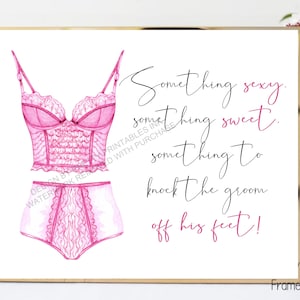 Something sexy,
something sweet,
something to
knock the groom
off his feet!
PRINTABLES
WITH PURCHASE
Frame